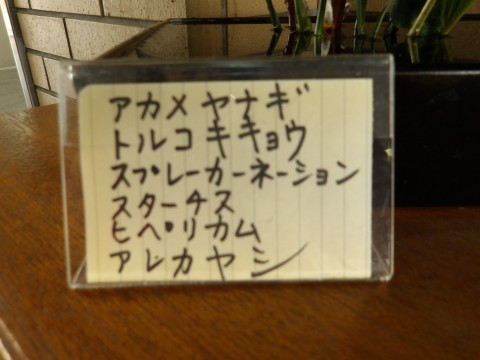 アカメヤナギ
トルコキキョウ
スプレーカーネーション
スターチス
ヒペリカム
アレカヤシ